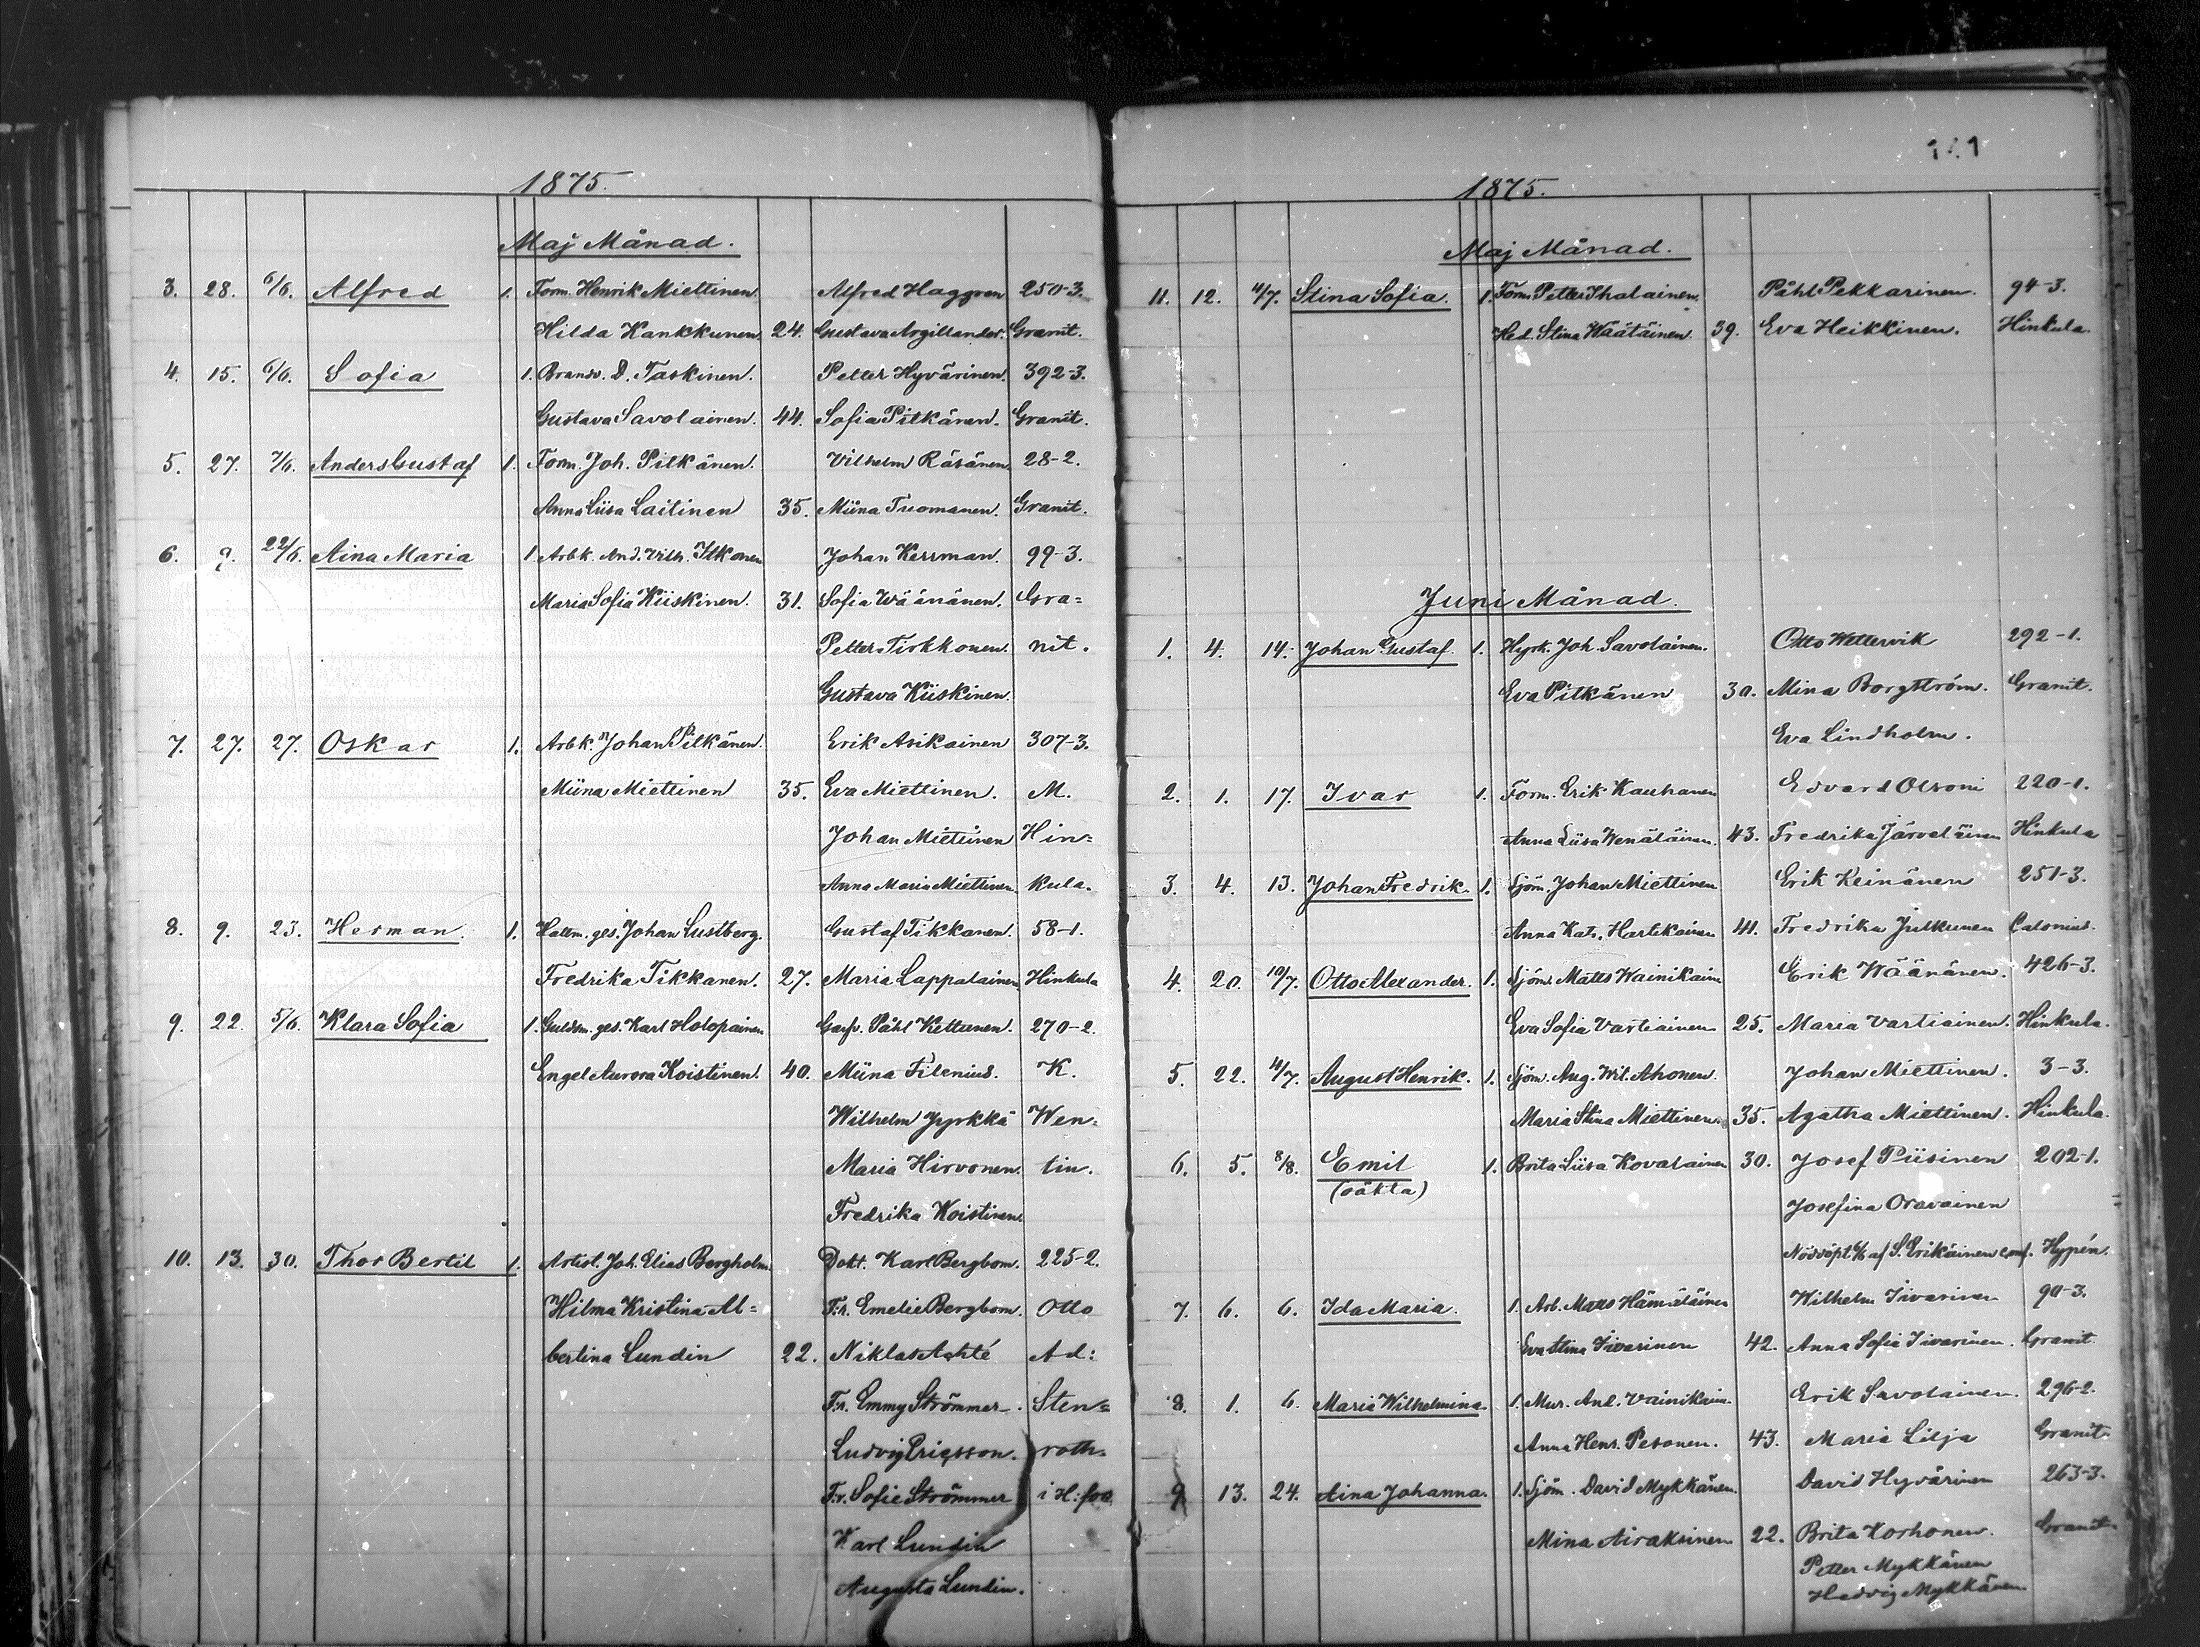 1875.
Maj Månad.
3. 28. 6/6. Alfred 1. Form. Henrik Miettinen. Alfred Haggren 250-3.
Hilda Kankkunen. 24. Gustava Argillander. Granit.
4. 15. 6/6. Sofia 1. Brandv. D. Taskinen. Petter Hyvärinen. 392-3.
Gustava Savolainen. 44. Sofia Pitkänen. Granit.
5. 27. 7/6. Anders Gustaf 1. Form. Joh. Pitkänen. Vilhelm Räsänen. 28-2.
Anna Liisa Laitinen 35. Miina Tuomanen. Granit.
6. 9. 22/6. Aina Maria 1. Arbk. And. Vilh. Itkonen Johan Kerrman. 99-3.
Maria Sofia Kiiskinen. 31. Sofia Wäänänen. Gra=
Petter Tirkkonen. nit.
Gustava Kiiskinen.
7. 27. 27. Oskar 1. Arbk. Johan Pitkänen. Erik Asikainen 307-3.
Miina Miettinen 35. Eva Miettinen. M.
Johan Miettinen Hin=
Anna Maria Miettinen. kula.
8. 9. 23. Herman. 1. Hattm. ges. Johan Lustberg. Gustaf Tikkanen. 58-1.
Fredrika Tikkanen. 27. Maria Lappalainen Hinkula
9. 22. 5/6. Klara Sofia 1. Guldsm. ges. Karl Holopainen Garfv. Påhl Kettunen. 270-2.
Engel Aurora Koistinen. 40. Miina Filenius. K.
Wilhelm Jyrkkä Wen=
Maria Hirvonen. tin.
Fredrika Koistinen.
10. 13. 30. Thor Bertil 1. Artist. Joh. Elias Bergholm. Dokt. Karl Bergbom. 225-2.
Hilma Kristina Al= F:r. Emelie Bergbom. Otto
bertina Lundin 22. Niklas Achté Ad:
F:r. Emmy Strömmer. Sten=
Ludvig Ericsson. roth.
F:r. Sofie Strömmer i H:fors
Karl Lundin
Augusta Lundin.
1875.
Maj Månad.
11. 12. 4/7. Stina Sofia. 1. Form. Petter Ihalainen. Påhl Pekkarinen. 94-3.
Hed. Stina Wäätäinen. 39. Eva Heikkinen. Hinkula.
Juni Månad.
1. 4. 14. Johan Gustaf. 1. Hyrk. Joh. Savolainen. Otto Wettervik 292-1.
Eva Pitkänen 30. Mina Borgström. Granit.
Eva Lindholm.
2. 1. 17. Ivar 1. Form. Erik Kauhanen Edvard Olsoni 220-1.
Anna Liisa Wenäläinen. 43. Fredrika Järveläinen Hinkula
3. 4. 13. Johan Fredrik. 1. Sjöm. Johan Miettinen Erik Keinänen 251-3.
Anna Kat. Hartikainen 41. Fredrika Julkunen Calonius.
4. 20. 10/7. Otto Alexander. 1. Sjöm. Matts Wainikain Erik Wäänänen. 426-3.
Eva Sofia Vartiainen 25. Maria Vartiainen. Hinkula.
5. 22. 4/7. August Henrik. 1. Sjöm. Aug. Wil. Ahonen. Johan Miettinen. 3-3.
Maria Stina Miettinen. 35. Agatha Miettinen. Hinkula.
6. 5. 8/8. Emil 1. Brita Liisa Kovalainen 30. Josef Piisinen 202-1.
(oäkta) Josefina Oravainen
Nöddöpt 6/6 af S. Erikäinen conf. Hypén.
7. 6. 6. Ida Maria. 1. Arb. Matts Hämäläinen Wilhelm Iivarinen 90-3.
Eva Stina Iivarinen 42. Anna Sofia Iivarinen. Granit
8. 1. 6. Maria Wilhelmina. 1. Mur. And. Vainikain. Erik Savolainen. 296-2.
Anna Henr. Pesonen. 43. Maria Lilja Granit.
9 13. 24. Aina Johanna. 1. Sjöm. David Mykkänen. David Hyvärinen 263-3.
Mina Airaksinen 22. Brita Korhonen. Granit.
Petter Mykkänen
Hedvig Mykkänen